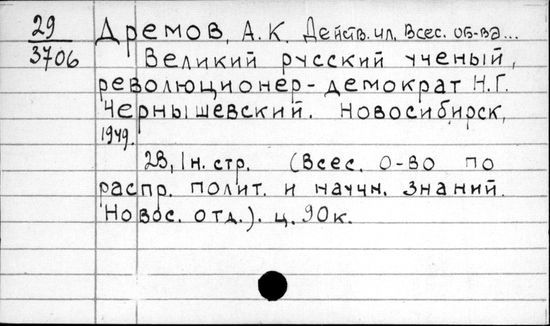 29
3706
Дремов, А. К. Действ. чл. Всес. об-ва...
Великий русский ученый,
революционер-демократ Н.Г.
Чернышевский. Новосибирск,
1949.
28, 1н. стр. (Всес. о-во по
распр. полит. и научн. знаний.
Новос. отд.). ц. 90к.